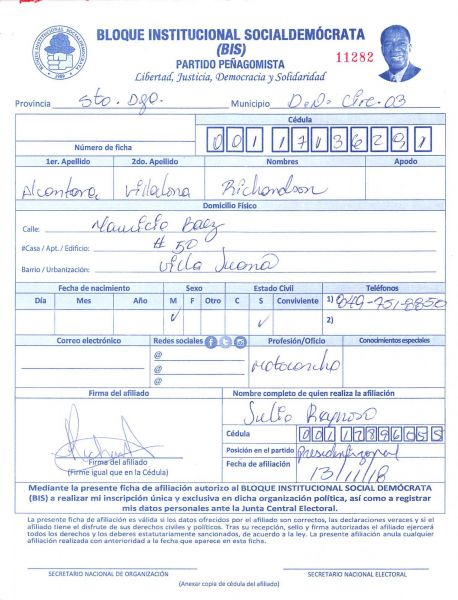 BLOQUE INSTITUCIONAL SOCIALDEMÓCRATA
(BIS)
PARTIDO PEÑAGOMISTA
Libertad, Justicia, Democracia y Solidaridad
11282
Provincia Sto. Dgo. Municipio D.N. Circ. 03
Cédula
Número de ficha
1er. Apellido 2do. Apellido Nombres Apodo
Alcantara Villalona Richardson
Domicilio Físico
Calle: Mauricio Baez
#Casa / Apt. / Edificio: # 50
Barrio / Urbanización: Villa Juana
Fecha de nacimiento Sexo Estado Civil Teléfonos
Día Mes Año M F Otro C S Conviviente 1) 849-751-8850
2)
Correo electrónico Redes sociales Profesión/Oficio Conocimientos especiales
@ Motoconcho
@
@
Firma del afiliado Nombre completo de quien realiza la afiliación
Julio Reynoso
Cédula
Posición en el partido
Firma del afiliado
(Firme igual que en la Cédula)
Fecha de afiliación 13/11/18
Mediante la presente ficha de afiliación autorizo al BLOQUE INSTITUCIONAL SOCIAL DEMÓCRATA
(BIS) a realizar mi inscripción única y exclusiva en dicha organización política, así como a registrar
mis datos personales ante la Junta Central Electoral.
La presente ficha de afiliación es válida si los datos ofrecidos por el afiliado son correctos, las declaraciones veraces y si el
afiliado tiene el disfrute de sus derechos civiles y políticos. Tras su recepción, sello y firma autorizados el afiliado ejercerá
todos los derechos y los deberes estatutariamente sancionados, de acuerdo a la ley. La presente afiliación anula cualquier
afiliación realizada con anterioridad a la fecha que aparece en esta ficha.
SECRETARIO NACIONAL DE ORGANIZACIÓN SECRETARIO NACIONAL ELECTORAL
(Anexar copia de cédula del afiliado)